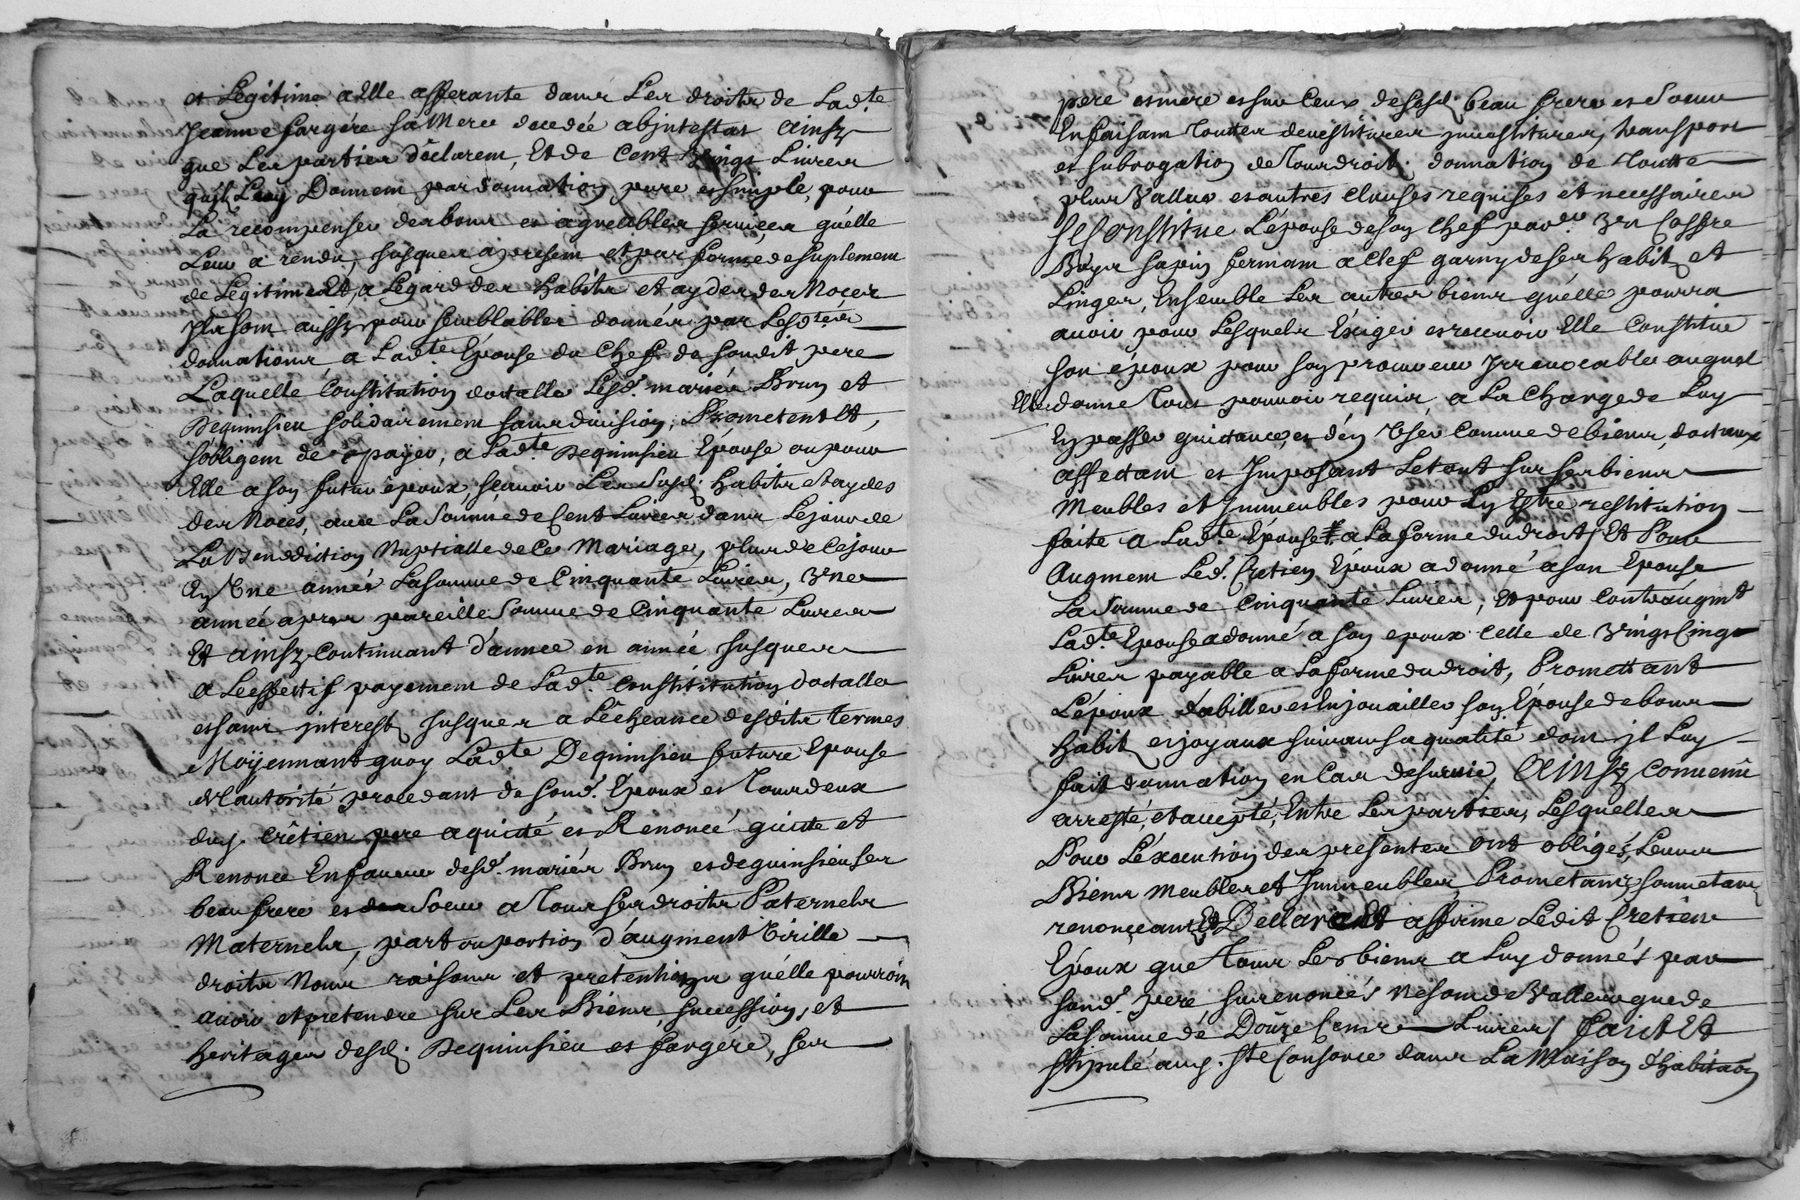 et Legitime a Elle afferante dans Les droits de Lad.te
Jeanne fargére sa Mere decedée abjntestat Ainsy
que Les parties déclarent, Et de Cent Vingt Livres
qu'il Luy Donnent par donnation pure et simple, pour
La recompense des bons et agreables services qu'elle
Leur a rendu, jusques a present et par forme de suplement
de Legitime Et, a Legard des habits et aydes des Noces
Jls sont aussy pour semblables donnés par Lesd.tes
donnations a Ladte Epouse du Chef de sondit pere
Laquelle Constitution dotalle Lesd. mariés Brun et
Dequinsieu solidairement sans division, Prometent Et,
s'obligent de payer, a Ladte. Dequinsieu Epouse ou pour
Elle a son futur époux, sçavoir Les Susd. habits et aydes
des Noces, avec La Somme de Cent Livres dans Le jour de
La Benediction Nuptialle de Ce Mariage, plus de Ce jour
En Vne année La somme de Cinquante Livres, Vne
année apres pareille Somme de Cinquante Livres
Et Ainsy Continuant d'année en année Jusques
a L'effectif payement de Ladte. Constitution dotalle
et sans interest Jusques a L'êcheance desdits termes
Moÿennant quoy Ladte Dequinsieu future Epouse
de Lautorité procedant de sond. Epoux et Tous deux
dud. Crêtien pere a quitté et Renoncé quitte et
Renonce En faveur desd. mariés Brun et dequinsieu ses
beau frere et Soeur a Tous ses droits Paternels
Maternels, part ou portion d'augment Virille
droits Noms raisons et pretentions qu'elle pourroit
avoir et pretendre sur Les Biens, succession, et
heritages desd. Dequinsieu et fargére, ses
pere et mere et sur Ceux de sesd. beau frere et Soeur
En faisant Toutes devestitures jnvestitures, transport
et subrogation de Tous droit. donnation de Toutte
plus Vallue et autres Clauses requises et necessaires
Se Constitue L'épouse de son Chef par Vn Coffre
Boys sapin fermant a Clef garny de ses habits Et
Linges, Ensemble Les autres biens qu'elle pourra
avoir pour Lesquels Exiger et recevoir Elle Constitue
son époux pour son procureur Jrrevocable auquel
Elle donne Tout pouvoir requis, a La Charge de Luy
En passer quittance, et d'en Vser Comme de biens, dotaux
affectant et Imposant Le tout sur ses biens
Meubles et Immeubles pour Luy Estre restitution
faite a Ladte. Epouse a La forme du droit Et Pour
Augment Led. Cretien Epoux a donné a son Epouse
La Somme de Cinquante Livres, Et pour Contr'augmt
Ladte. Epouse a donné a son epoux Celle de Vingt Cinq
Livres payable a La forme du droit, Promettant
L'époux d'abiller et Enjouailler son Epouse de bons
habits et joyaux suivant sa qualité dont il Luy
fait donnation en Cas de survie, Ainsy Convenû
arresté, et accepté, Entre Les parties, Lesquelles
Pour L'éxecution des presentes Ont obligés, Leurs
Biens Meubles et Immeubles Prometant, soumetant
renonçeant, Et Déclarant affirme Ledit Cretien
Epoux que Tous Les biens a Luy donnés par
sond. pere surenoncés Ne sont de Valleur que de
La somme de Douze Cents Livres / fait Et
stipulé aud. Ste Consorce dans La Maison d'habitaôn